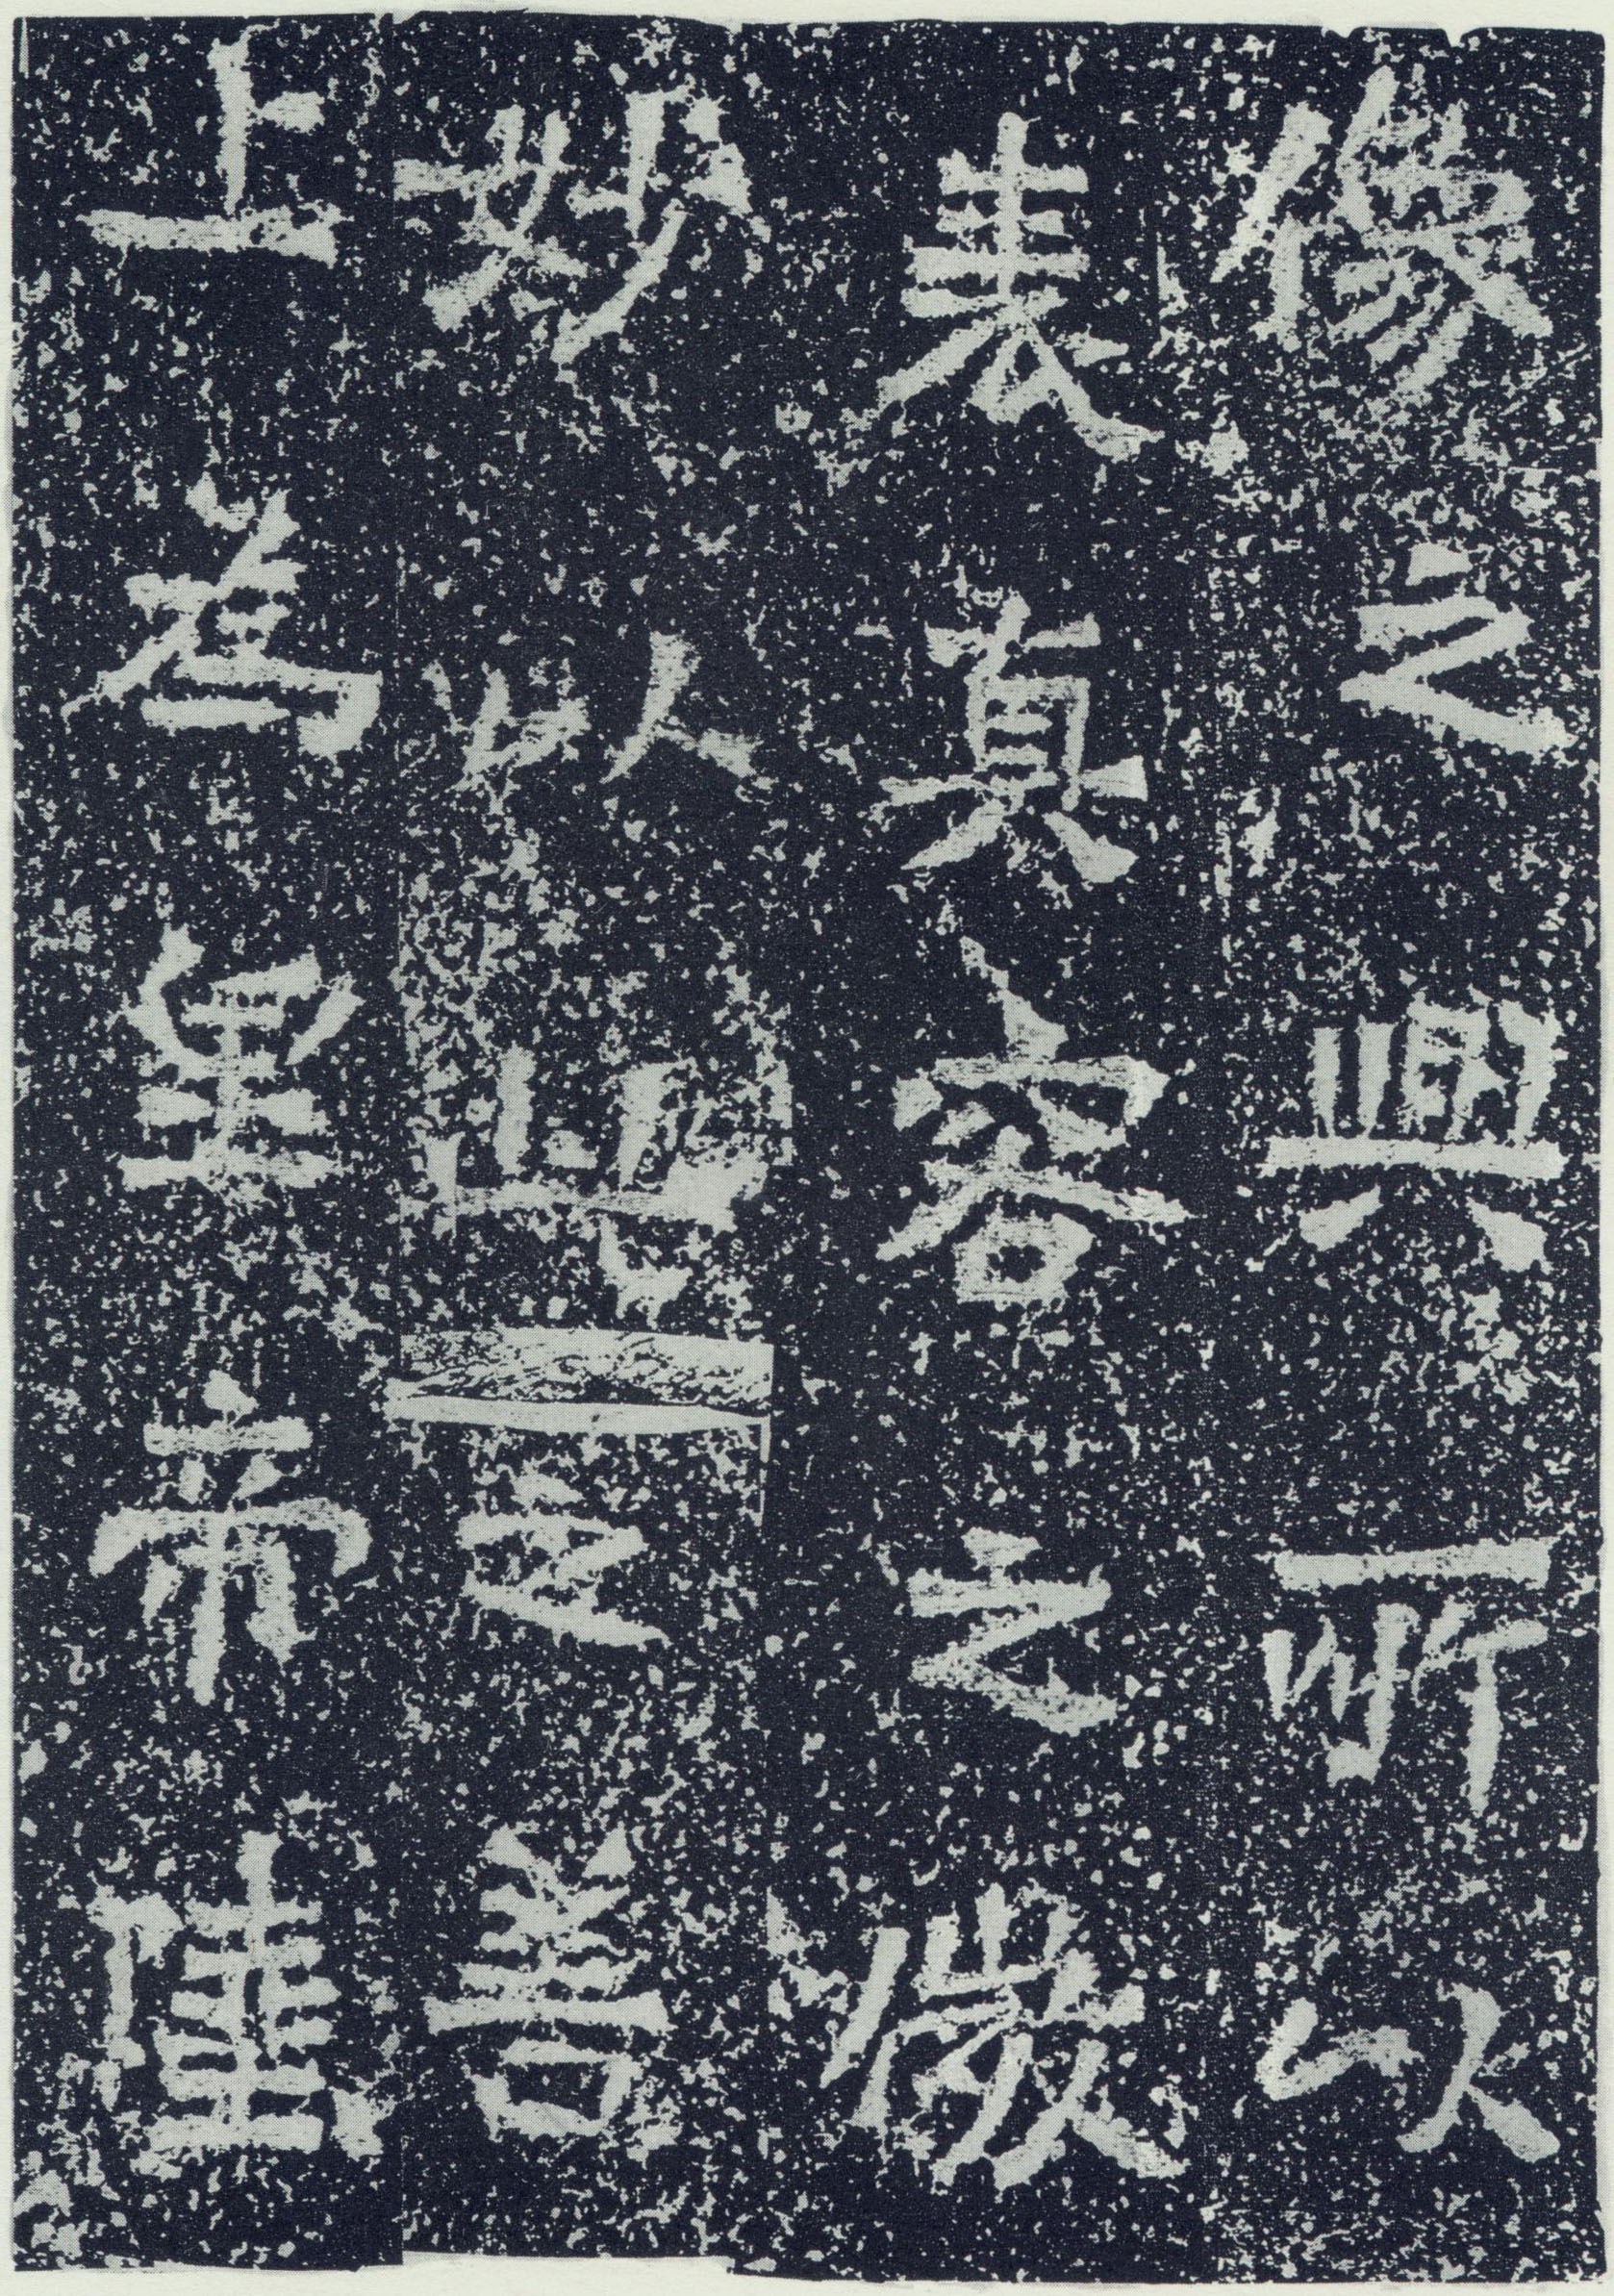 像之興所以
表真容之微
妙以之善
上為皇帝陛